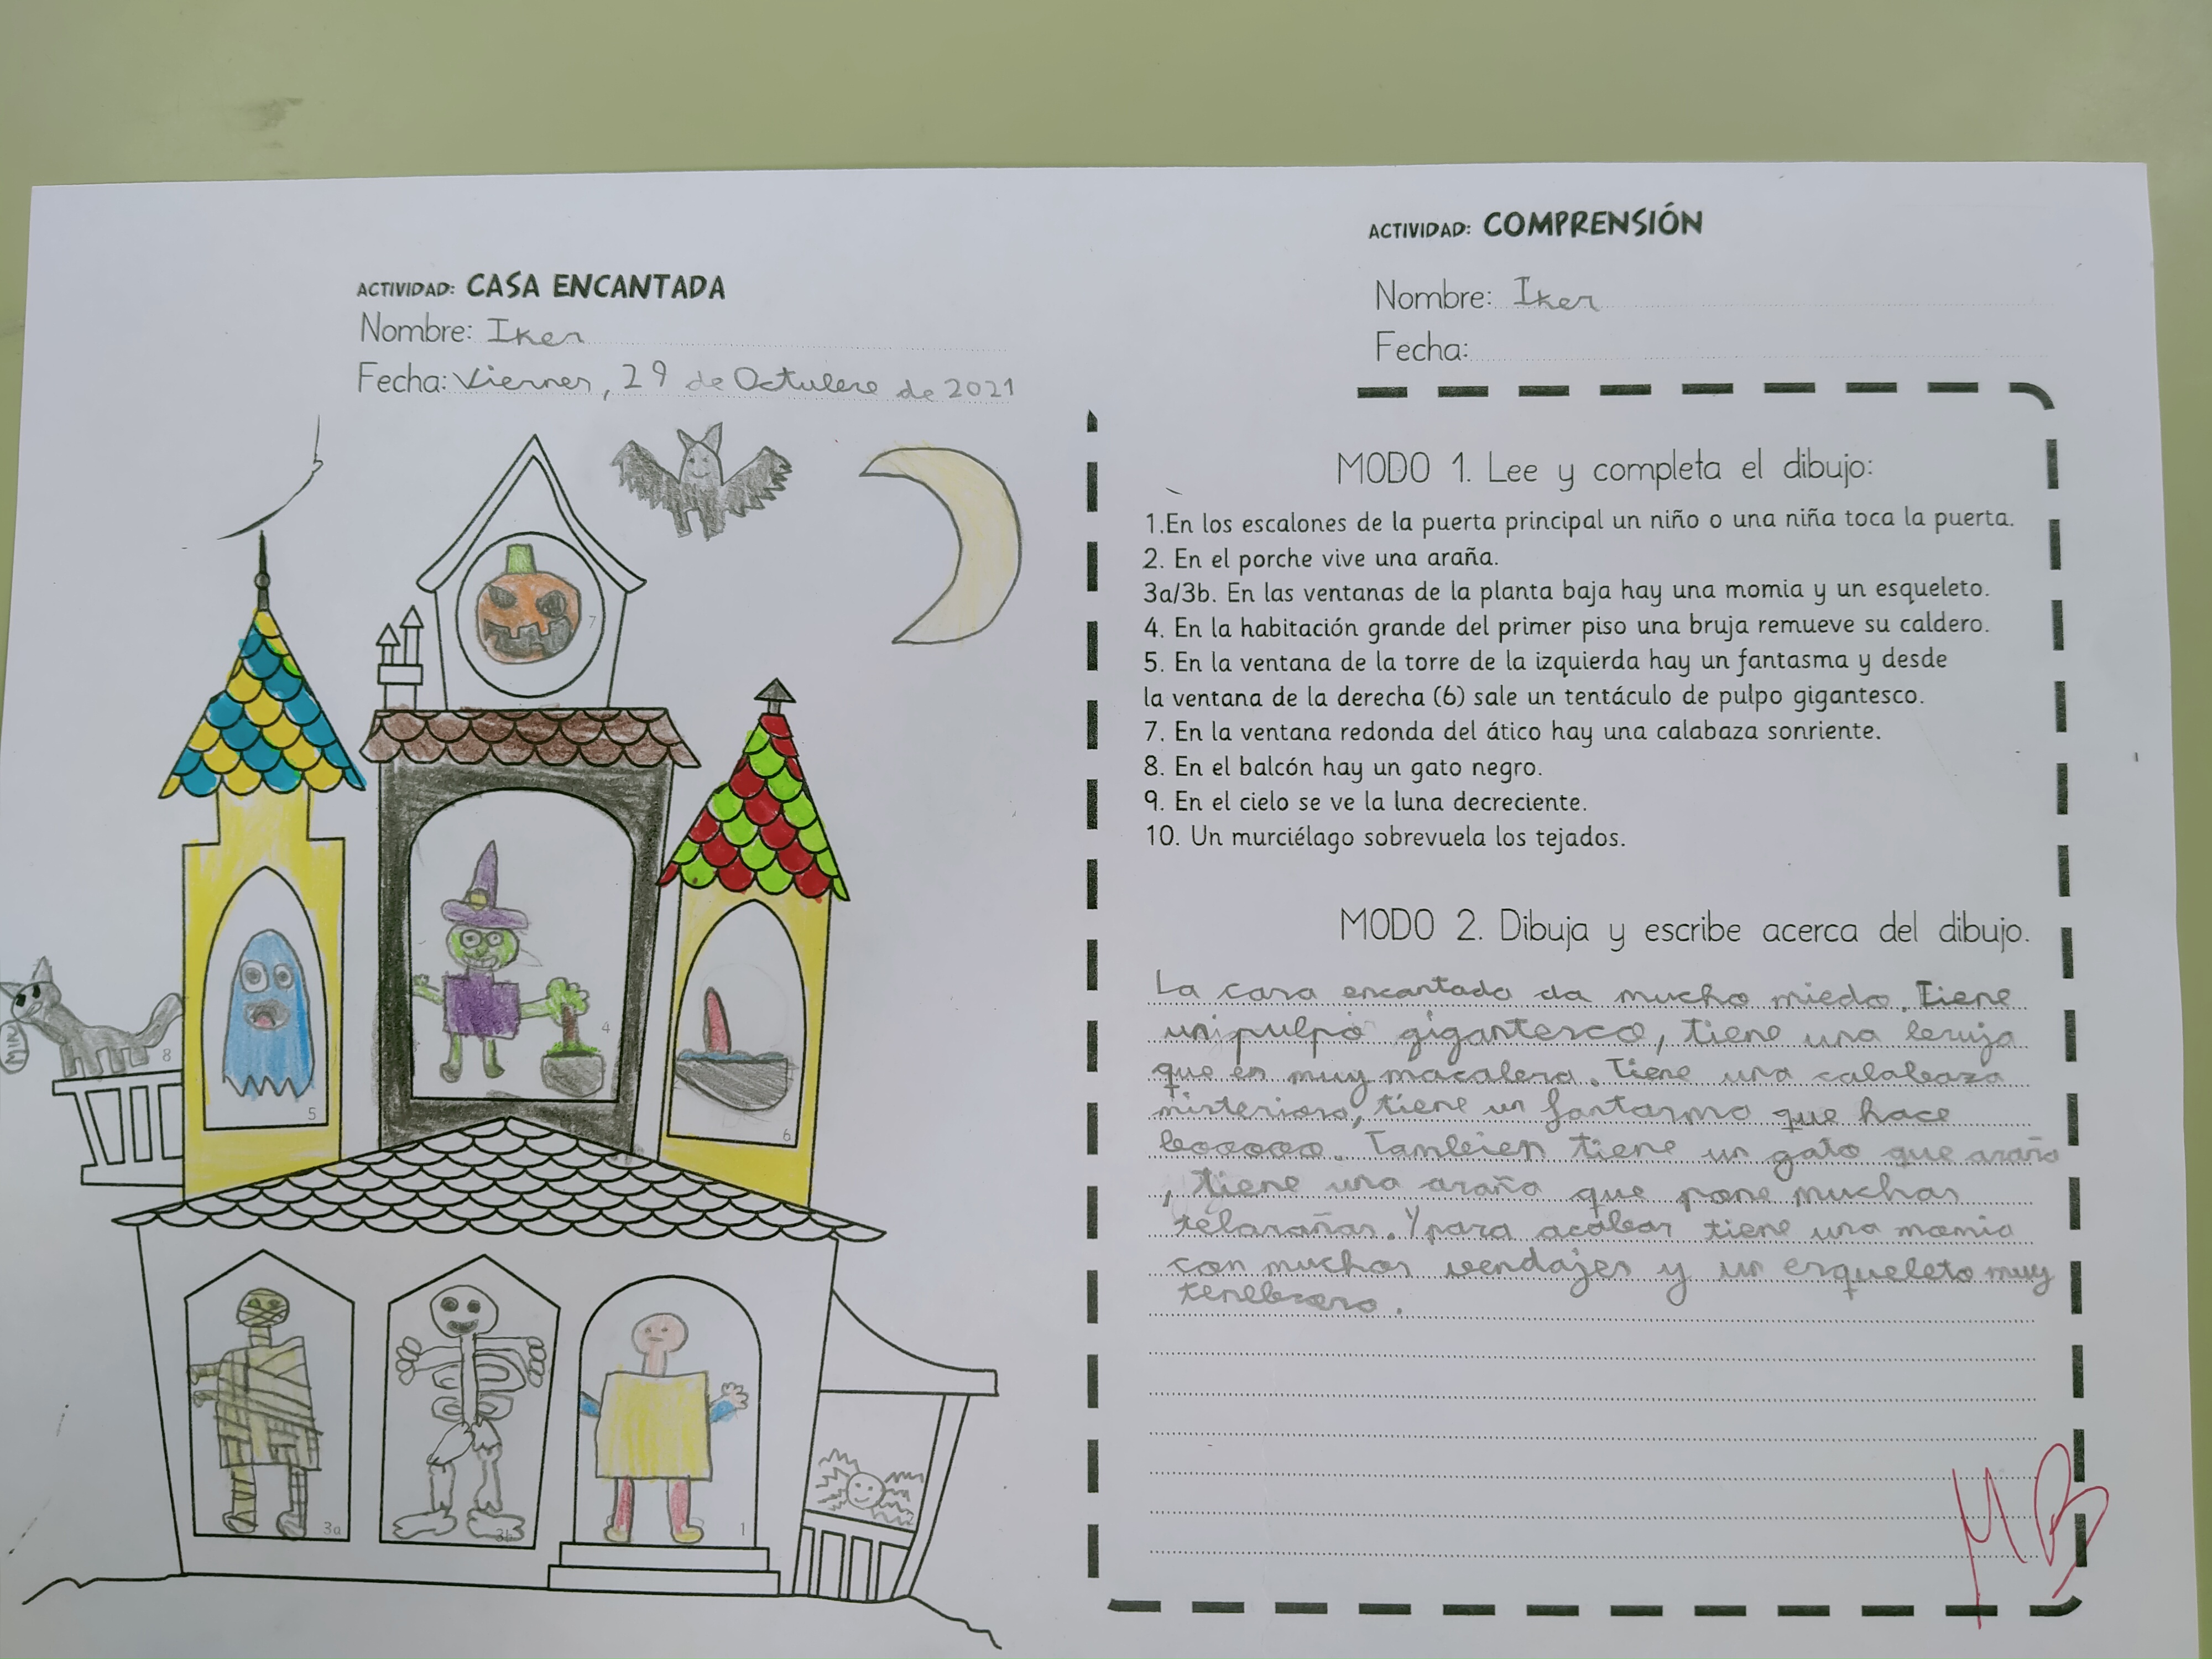 ACTIVIDAD: CASA ENCANTADA
Nombre: Iker
Fecha: Viernes, 29 de Octubre de 2021
7
4
5
6
8
MIAU
3a
3b
1
ACTIVIDAD: COMPRENSIÓN
Nombre: Iker
Fecha:
MODO 1. Lee y completa el dibujo:
1.En los escalones de la puerta principal un niño o una niña toca la puerta.
2. En el porche vive una araña.
3a/3b. En las ventanas de la planta baja hay una momia y un esqueleto.
4. En la habitación grande del primer piso una bruja remueve su caldero.
5. En la ventana de la torre de la izquierda hay un fantasma y desde
la ventana de la derecha (6) sale un tentáculo de pulpo gigantesco.
7. En la ventana redonda del ático hay una calabaza sonriente.
8. En el balcón hay un gato negro.
9. En el cielo se ve la luna decreciente.
10. Un murciélago sobrevuela los tejados.
MODO 2. Dibuja y escribe acerca del dibujo.
La casa encantada da mucho miedo. Tiene
un pulpo gigantesco, tiene una bruja
que es muy macabra. Tiene una calabaza
misteriosa, tiene un fantasma que hace
booooo. Tambien tiene un gato que araña
, tiene una araña que pone muchas
telarañas. Y para acabar tiene una momia
con muchos vendajes y un esqueleto muy
tenebroso.
MB